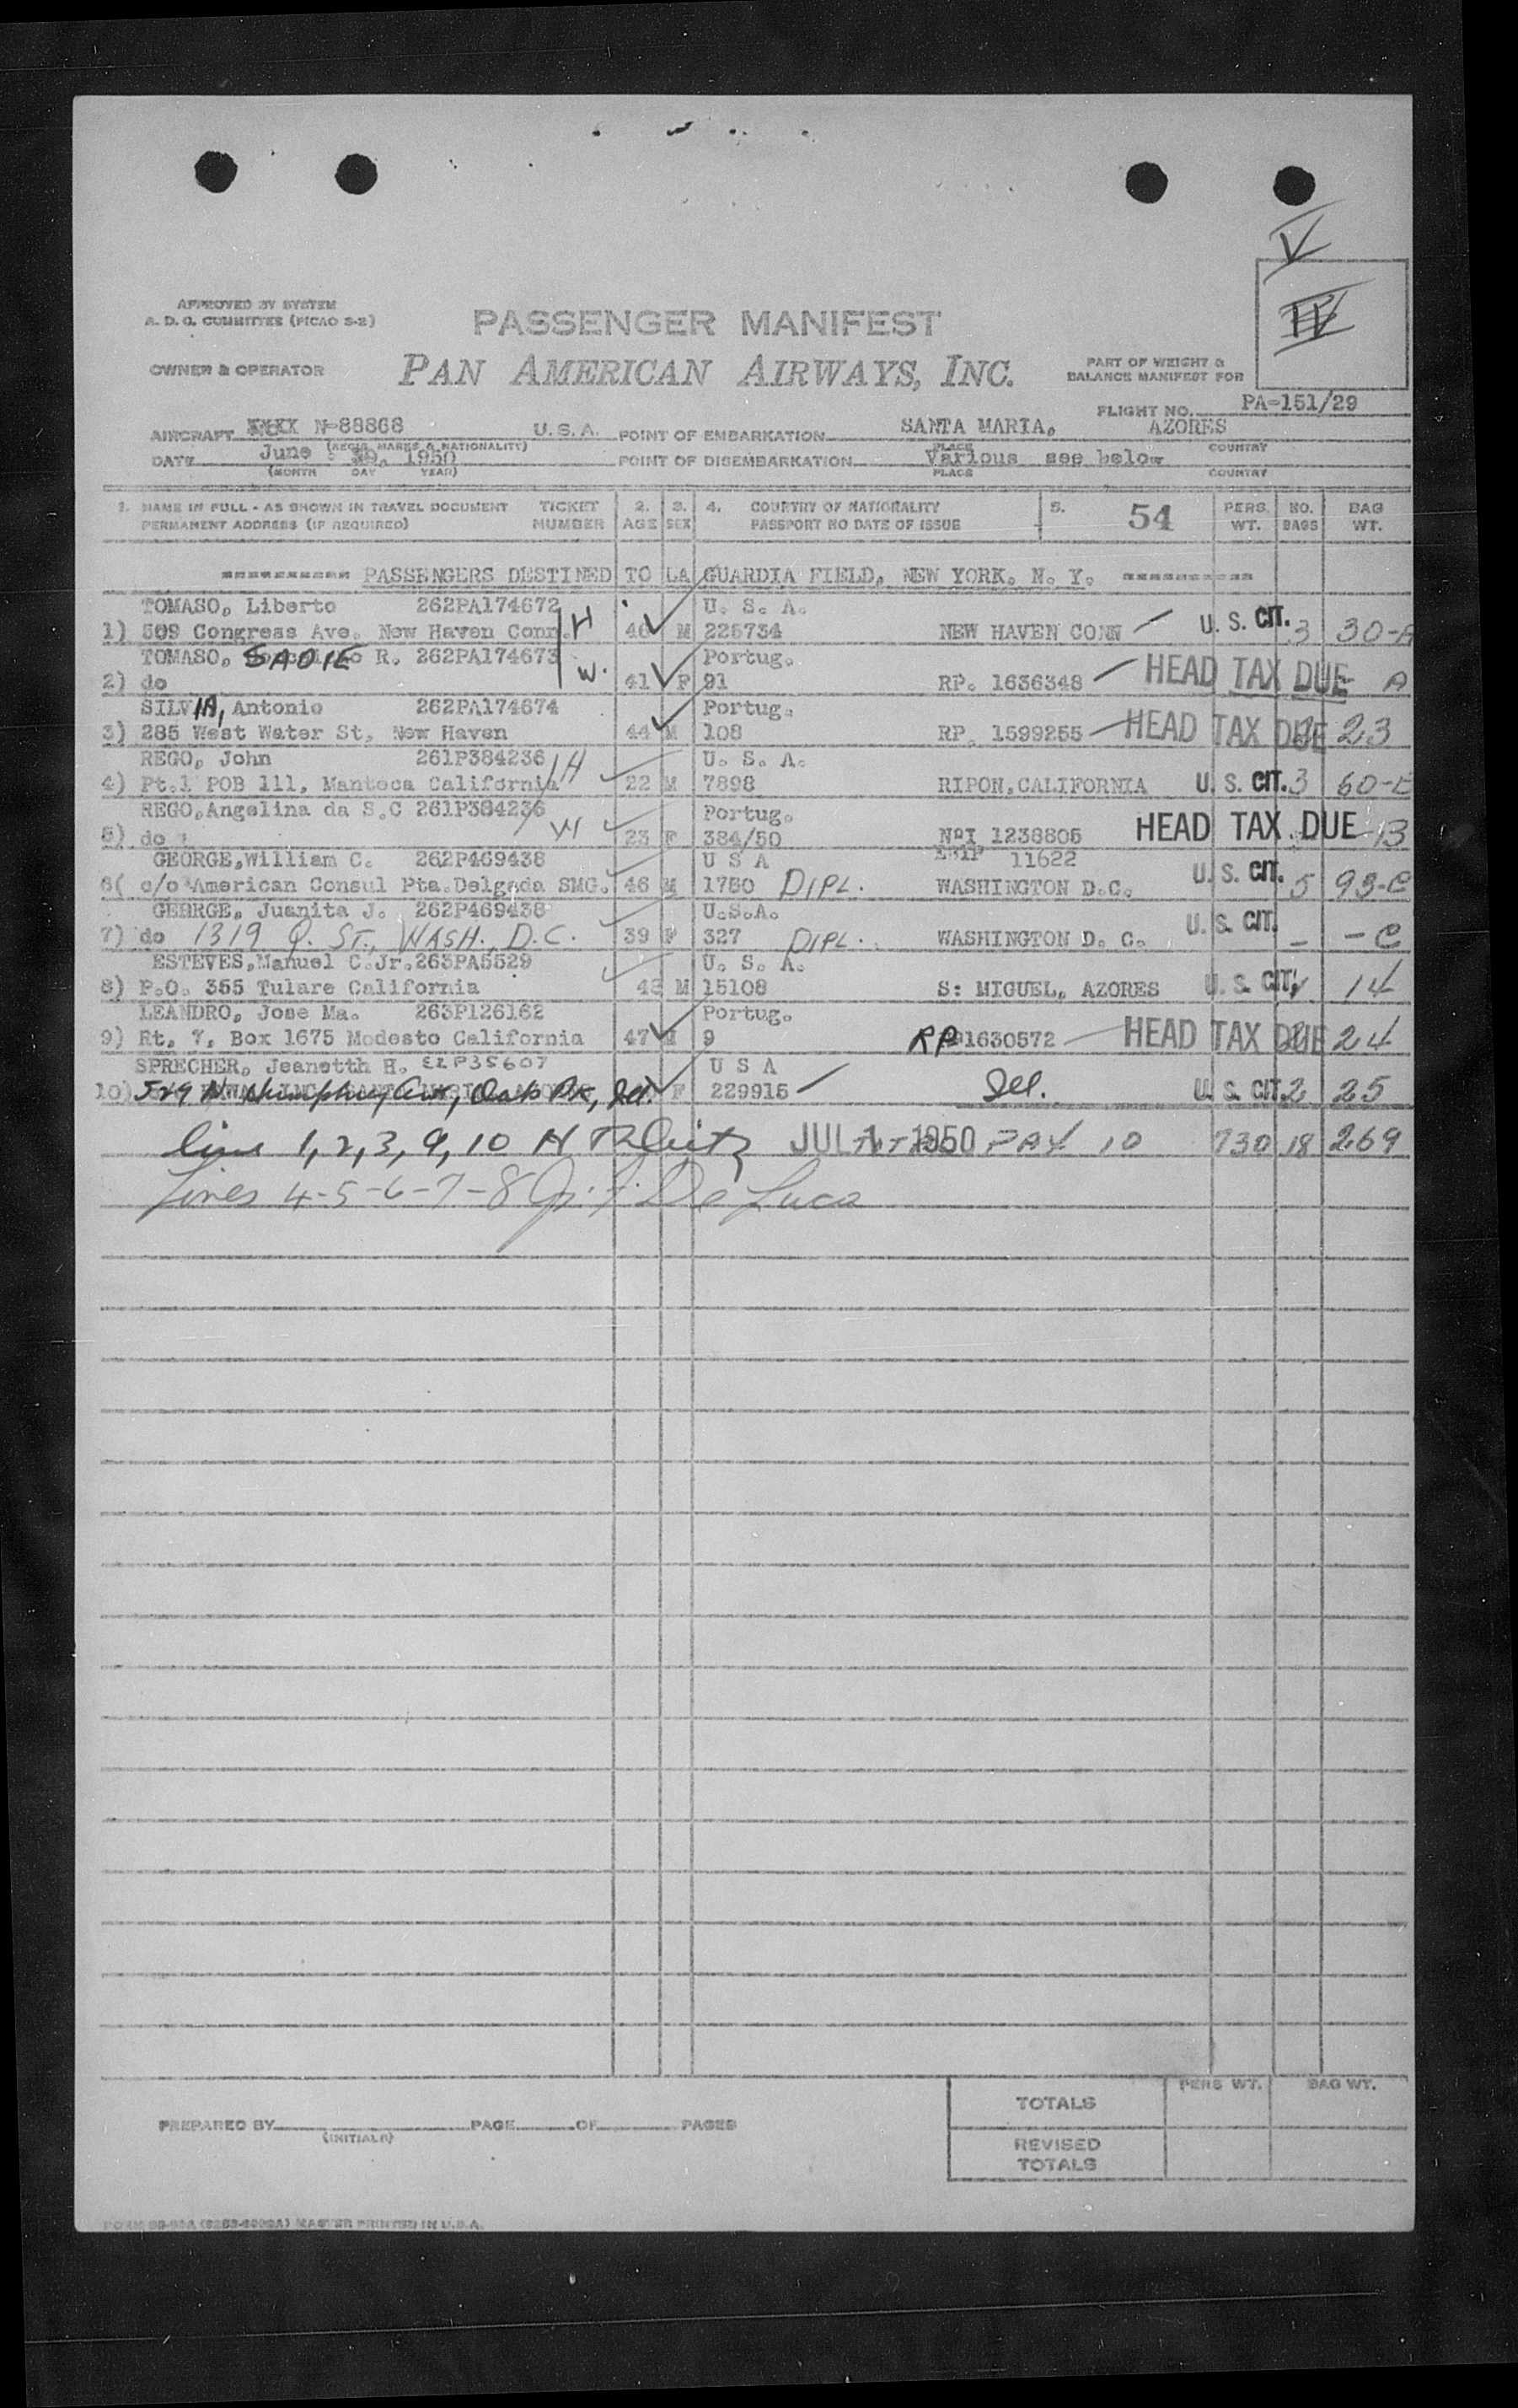 V
IV
APPROVED BY SYSTEM
A. D. C. COMMITTEE (PICAO S-2)
PASSENGER MANIFEST
OWNER & OPERATOR PAN AMERICAN AIRWAYS, INC. PART OF WEIGHT & BALANCE MANIFEST FOR
FLIGHT NO. PA-151/29
AIRCRAFT N-88868 U.S.A. POINT OF EMBARKATION SANTA MARIA, AZORES
(REGIS. MARKS & NATIONALITY) PLACE COUNTRY
DATE June 1950 POINT OF DISEMBARKATION Various see below
(MONTH DAY YEAR) PLACE COUNTRY
1. NAME IN FULL - AS SHOWN IN TRAVEL DOCUMENT TICKET 2. 3. 4. COUNTRY OF NATIONALITY 5. 54 PERS. NO. BAG
PERMANENT ADDRESS (IF REQUIRED) NUMBER AGE SEX PASSPORT NO DATE OF ISSUE WT. BAGS WT.
---------- PASSENGERS DESTINED TO LA GUARDIA FIELD, NEW YORK. N. Y. ----------
TOMASO, Liberto 262PA174672 U. S. A.
1) 509 Congress Ave. New Haven Conn. H 46 M 225734 NEW HAVEN CONN U. S. CIT. 3 30-A
TOMASO, SADIE R. 262PA174673 Portug.
2) do W. 41 F 91 RP. 1636348 HEAD TAX DUE - A
SILVIA, Antonio 262PA174674 Portug.
3) 285 West Water St, New Haven 44 M 108 RP. 1599255 HEAD TAX DUE 23
REGO, John 261P384236 H U. S. A.
4) Pt.1 POB 111, Manteca California 22 M 7898 RIPON, CALIFORNIA U. S. CIT. 3 60-B
REGO, Angelina da S.C 261P384236 Portug.
5) do W 23 F 384/50 NQI 1238805 HEAD TAX DUE -B
GEORGE, William C. 262P469438 U S A 11622
6( c/o American Consul Pta.Delgada SMG. 46 M 1750 DIPL. WASHINGTON D.C. U. S. CIT. 5 93-C
GEORGE, Juanita J. 262P469438 U.S.A.
7) do 1319 Q. ST., WASH., D.C. 39 F 327 DIPL. WASHINGTON D. C. U. S. CIT. - - C
ESTEVES, Manuel C.Jr. 263PA5529 U. S. A.
8) P.O. 355 Tulare California 48 M 15108 S: MIGUEL, AZORES U. S. CIT. 14
LEANDRO, Jose Ma. 263P126162 Portug.
9) Rt. 7, Box 1675 Modesto California 47 M 9 RP 1630572 HEAD TAX DUE 24
SPRECHER, Jeanetth H. 35607 U S A
10) 529 N. Humphrey Ave, Oak Pk, Ill. F 229915 Ill. U. S. CIT 2 25
line 1, 2, 3, 9, 10 JUL 1 1950 PAX 10 730 18 269
Lines 4-5-6-7-8 De Luca
PREPARED BY PAGE OF PAGES
(INITIALS)
PERS WT. BAG WT.
TOTALS
REVISED TOTALS
MASTER PRINTED IN U.S.A.